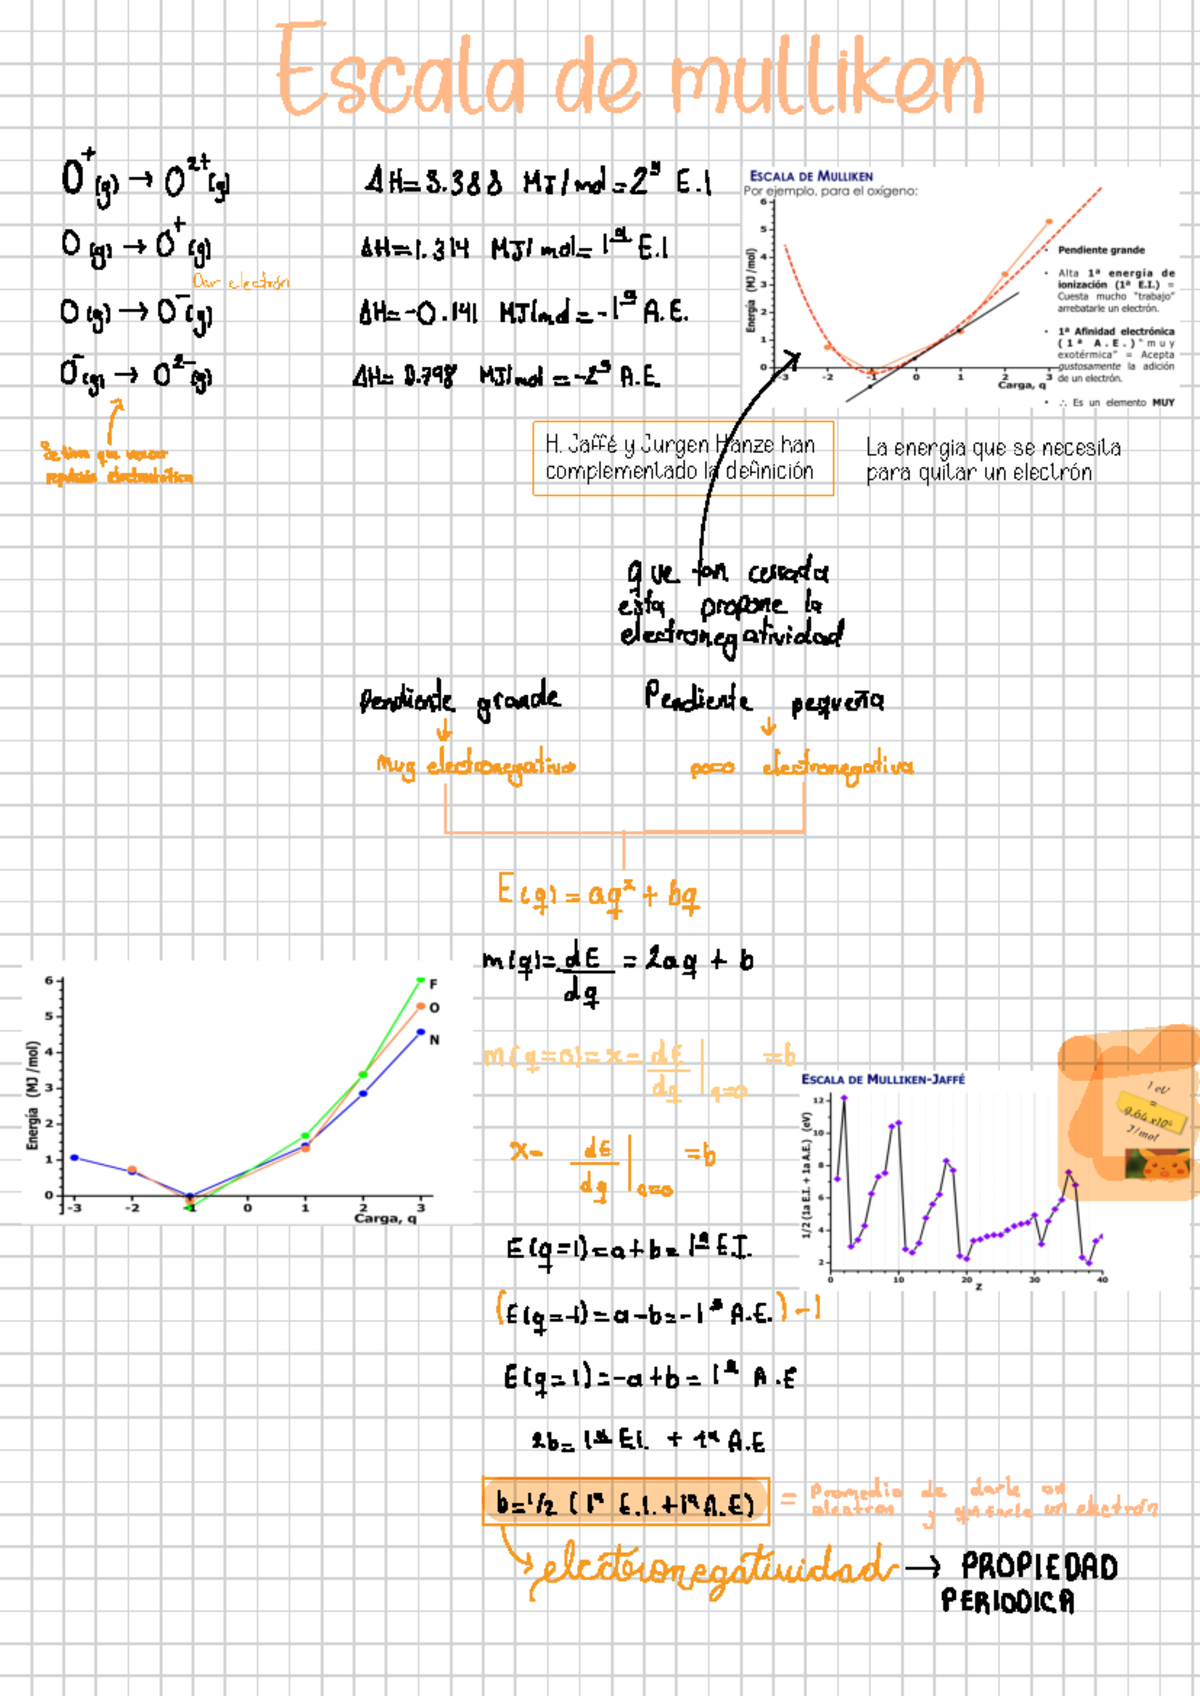 Escala de mulliken
O⁺(g) → O²⁺(g) ΔH=3.388 MJ/mol=2ª E.I
O(g) → O⁺(g) ΔH=1.314 MJ/mol=1ª E.I
Dar electrón
O(g) → O⁻(g) ΔH=-0.141 MJ/mol=-1ª A.E.
O⁻(g) → O²⁻(g) ΔH= 0.798 MJ/mol=-2ª A.E.
Se tiene que vencer
repulsión electrostática
ESCALA DE MULLIKEN
Por ejemplo, para el oxígeno:
Energía (MJ/mol)
6
5
4
3
2
1
0
-3 -2 -1 0 1 2 3
Carga, q
• Pendiente grande
• Alta 1ª energía de
ionización (1ª E.I.) =
Cuesta mucho "trabajo"
arrebatarle un electrón.
• 1ª Afinidad electrónica
(1ª A.E.) "muy
exotérmica" = Acepta
gustosamente la adición
de un electrón.
• ∴ Es un elemento MUY
H. Jaffé y Jurgen Hanze han
complementado la definición
La energia que se necesita
para quitar un electrón
que tan cerrada
esta propone la
electronegatividad
Pendiente grande Pendiente pequeña
↓ ↓
Muy electronegativo poco electronegativa
E(q)=aq²+bq
m(q)=dE/dq = 2aq + b
m(q=0)=x=dE/dq|q=0 =b
x= dE/dq|q=0 =b
Energía (MJ/mol)
6
5
4
3
2
1
0
-3 -2 -1 0 1 2 3
Carga, q
F
O
N
ESCALA DE MULLIKEN-JAFFÉ
1/2 (1a E.I. + 1a A.E.) (eV)
12
10
8
6
4
2
0 10 20 30 40
Z
1 eV
=
9.64 x10⁴
J/mol
E(q=1)=a+b=1ª E.I.
(E(q=-1)=a-b=-1ª A.E.)-1
E(q=1)=-a+b=1ª A.E
2b=1ª E.I. + 1ª A.E
b=1/2 (1ª E.I.+1ª A.E) = Promedio de darle un
electron y quitarle un electrón
electronegatividad → PROPIEDAD
PERIODICA